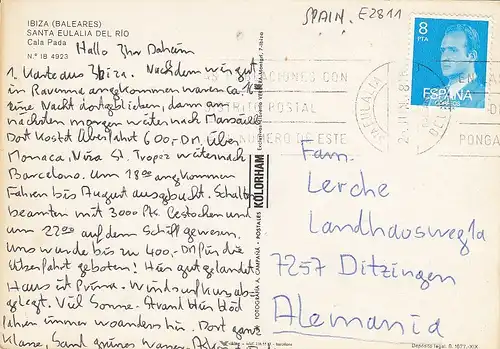 IBIZA (BALEARES)
SANTA EULALIA DEL RÍO
Cala Pada
N.º IB 4923
SPAIN, E2811
8
PTA
ESPAÑA
Hallo Ihr Daheim
1. Karte aus Ibiza. Nachdem wir gut
in Ravenna angekommen waren ca. 16
eine Nacht dortgeblieben, dann am
nächsten morgen weiter nach Marseille
Dort kostet Überfahrt 600,- DM. Über
Monaco, Nizza St. Tropez weiter nach
Barcelona. Um 18 00 angekommen
Fähren bis August ausgebucht. Schalter
beamten mit 3000 Ptk. bestochen und
um 22 00 auf dem Schiff gewesen.
Uns wurde bis zu 400,- DM für die
Überfahrt geboten! Hier gut gelandet
Haus ist Prima. Windsurfkurs ab
gelegt. Viel Sonne. Strand blöd
fahren immer woanders hin. Dort ganz
klare, Sand grünes Wasser.
ACIONES CON
POSTAL
NUMERO DE ESTE
EN
PONGA
STA EULALIA
DEL
KOLORHAM
FOTOGRAFIA A. CAMPAÑA - POSTALES
Fam.
Lerche
Landhausweg 1a
7257 Ditzingen
Alemania
Depósito legal, B. 1677-XIX